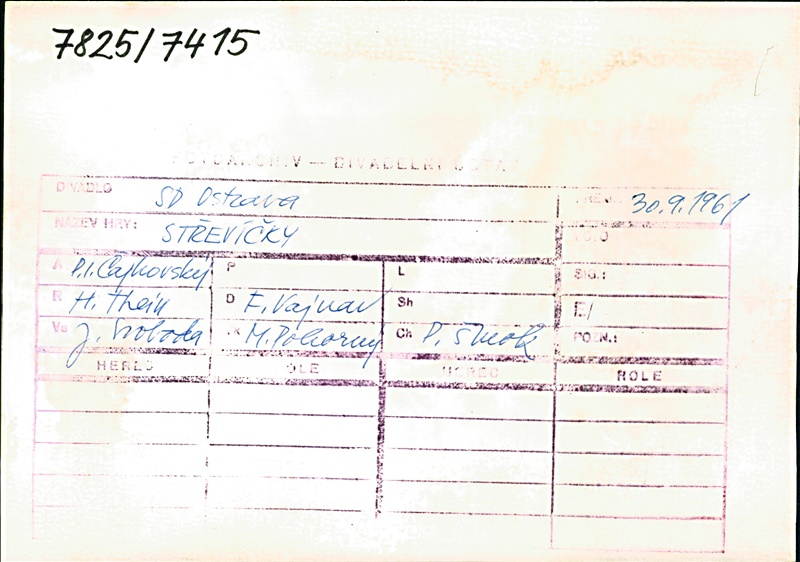 7825/7415
FOTOARCHIV — DIVADELNÍ ÚSTAV
DIVADLO SD Ostrava 30.9.1961
NÁZEV HRY: STŘEVÍČKY FOTO
A P.I. Čajkovský P L SIG.:
R H. Thein D E. Vajnar Sh Č/
Vs J. Svoboda K M. Pokorný Ch P. Šmok POZN.:
HEREC ROLE HEREC ROLE